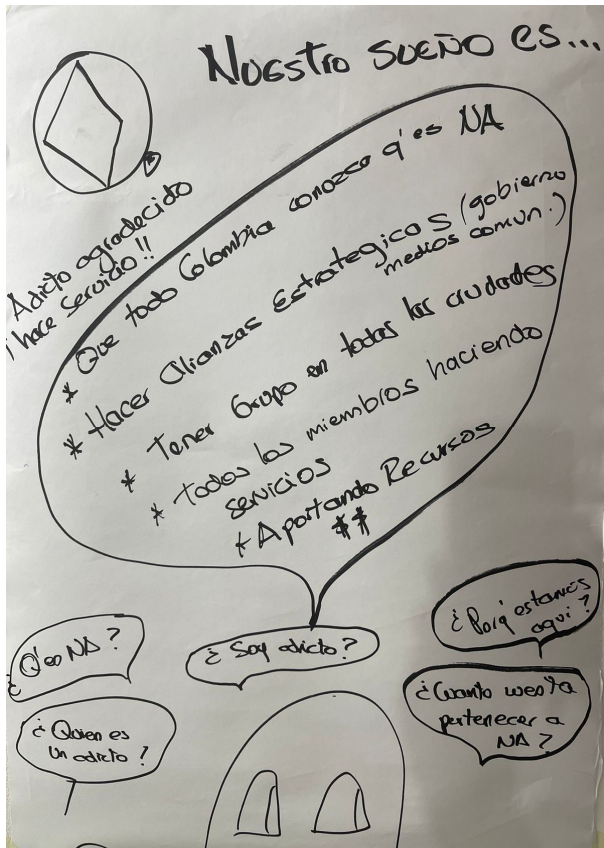 Nuestro sueño es...
Adicto agradecido
¡hace servicio!!
* Que todo Colombia conozca q' es NA
* Hacer alianzas Estrategicas (gobierno
medios comun.)
* Tener Grupo en todas las ciudades
* Todos los miembros haciendo
servicios
* Aportando Recursos
$$
¿Q' es NA?
¿Soy adicto?
¿Porq' estamos
aqui?
¿Quien es
un adicto?
¿Cuanto cuesta
pertenecer a
NA?